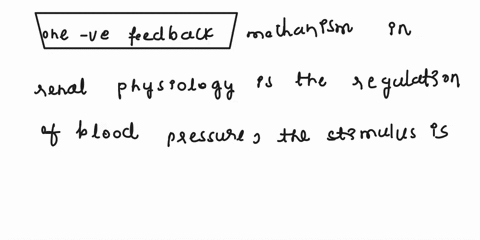 one -ve feedback mechanism in
renal physiology is the regulation
of blood pressure, the stimulus is